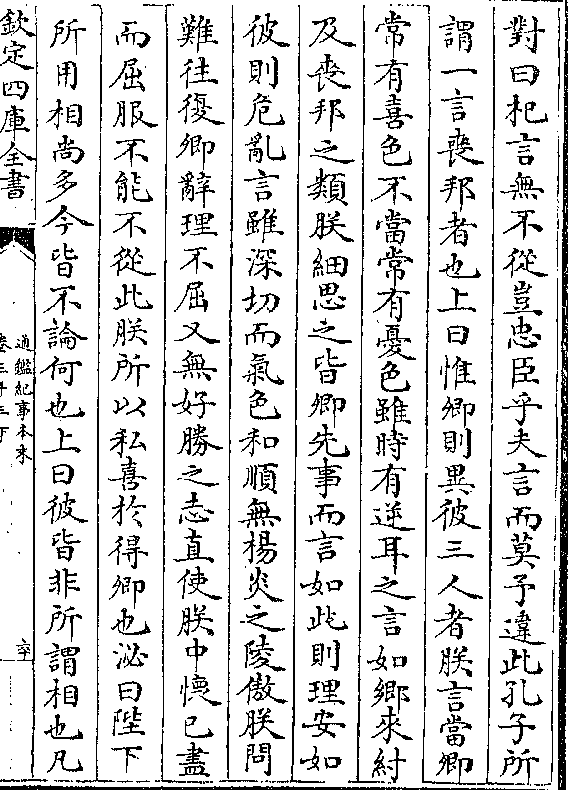 對曰杞言無不從豈忠臣乎夫言而莫予違此孔子所
謂一言喪邦者也上曰惟卿則異彼三人者朕言當卿
常有喜色不當常有憂色雖時有逆耳之言如鄉來紂
及喪邦之類朕細思之皆卿先事而言如此則理安如
彼則危亂言雖深切而氣色和順無楊炎之陵傲朕問
難往復卿辭理不屈又無好勝之志直使朕中懷已盡
而屈服不能不從此朕所以私喜於得卿也泌曰陛下
所用相尚多今皆不論何也上曰彼皆非所謂相也凡
欽定四庫全書
通鑑紀事本末
卷三十三下